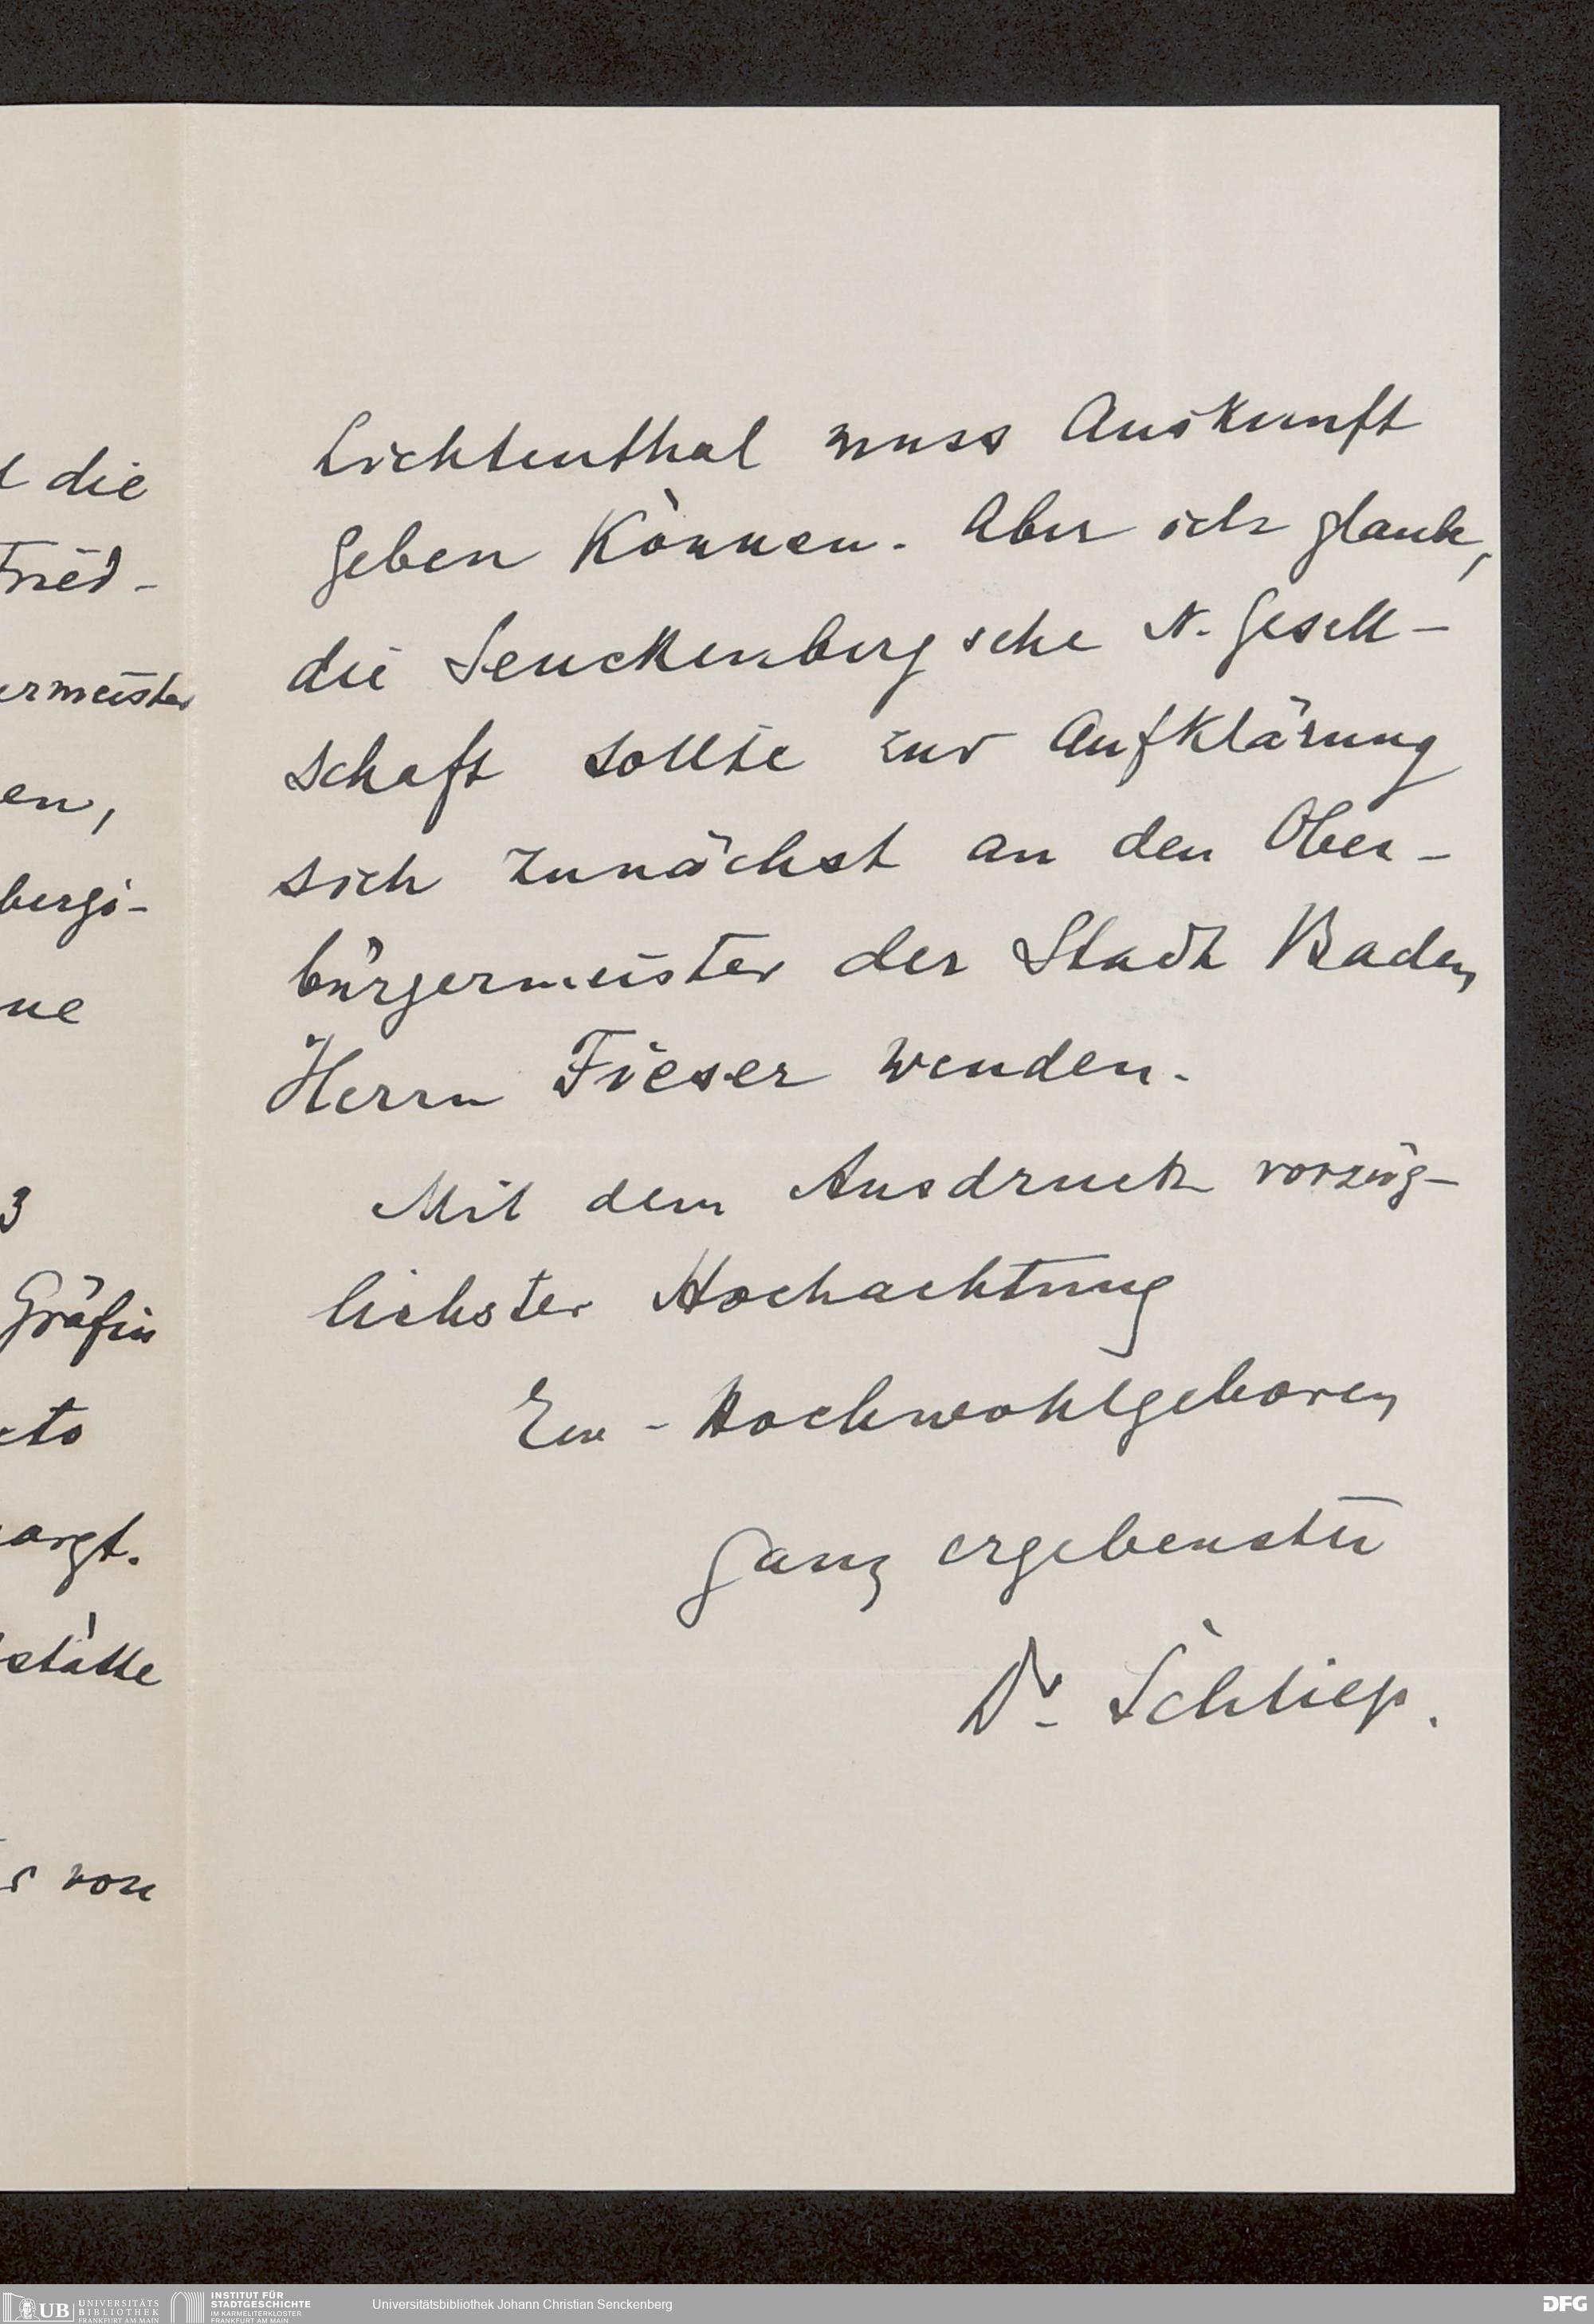 die
Fried-
ermeister
en,
bergi-
ne
3
Gräfin
cto
argt.
stätte
von
Lichtenthal muss Auskunft
geben können. Aber ich glaube,
die Senckenbergsche N. Gesell-
schaft sollte zur Aufklärung
sich zunächst an den Ober-
bürgermeister der Stadt Baden
Herrn Fieser wenden.
Mit dem Ausdruck vorzüg-
lichster Hochachtung
Ew - Hochwohlgeboren
ganz ergebenster
Dr. Schliep.
UB UNIVERSITÄTS BIBLIOTHEK FRANKFURT AM MAIN
INSTITUT FÜR STADTGESCHICHTE IM KARMELITERKLOSTER FRANKFURT AM MAIN
Universitätsbibliothek Johann Christian Senckenberg
DFG